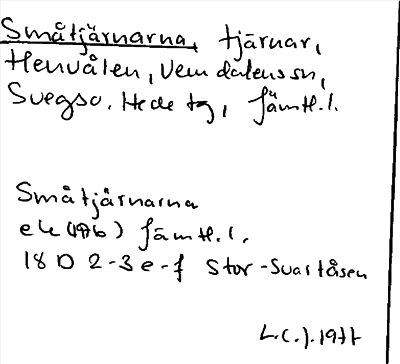 Småtjärnarna, tjärnar,
Henvålen, Vemdalens sn,
Svegs o. Hede tg, Jämtl. l.
Småtjärnarna
ek (1976) Jämtl. l.
18 D 2-3 e-f Stor-Svartåsen
L.C.J. 1977